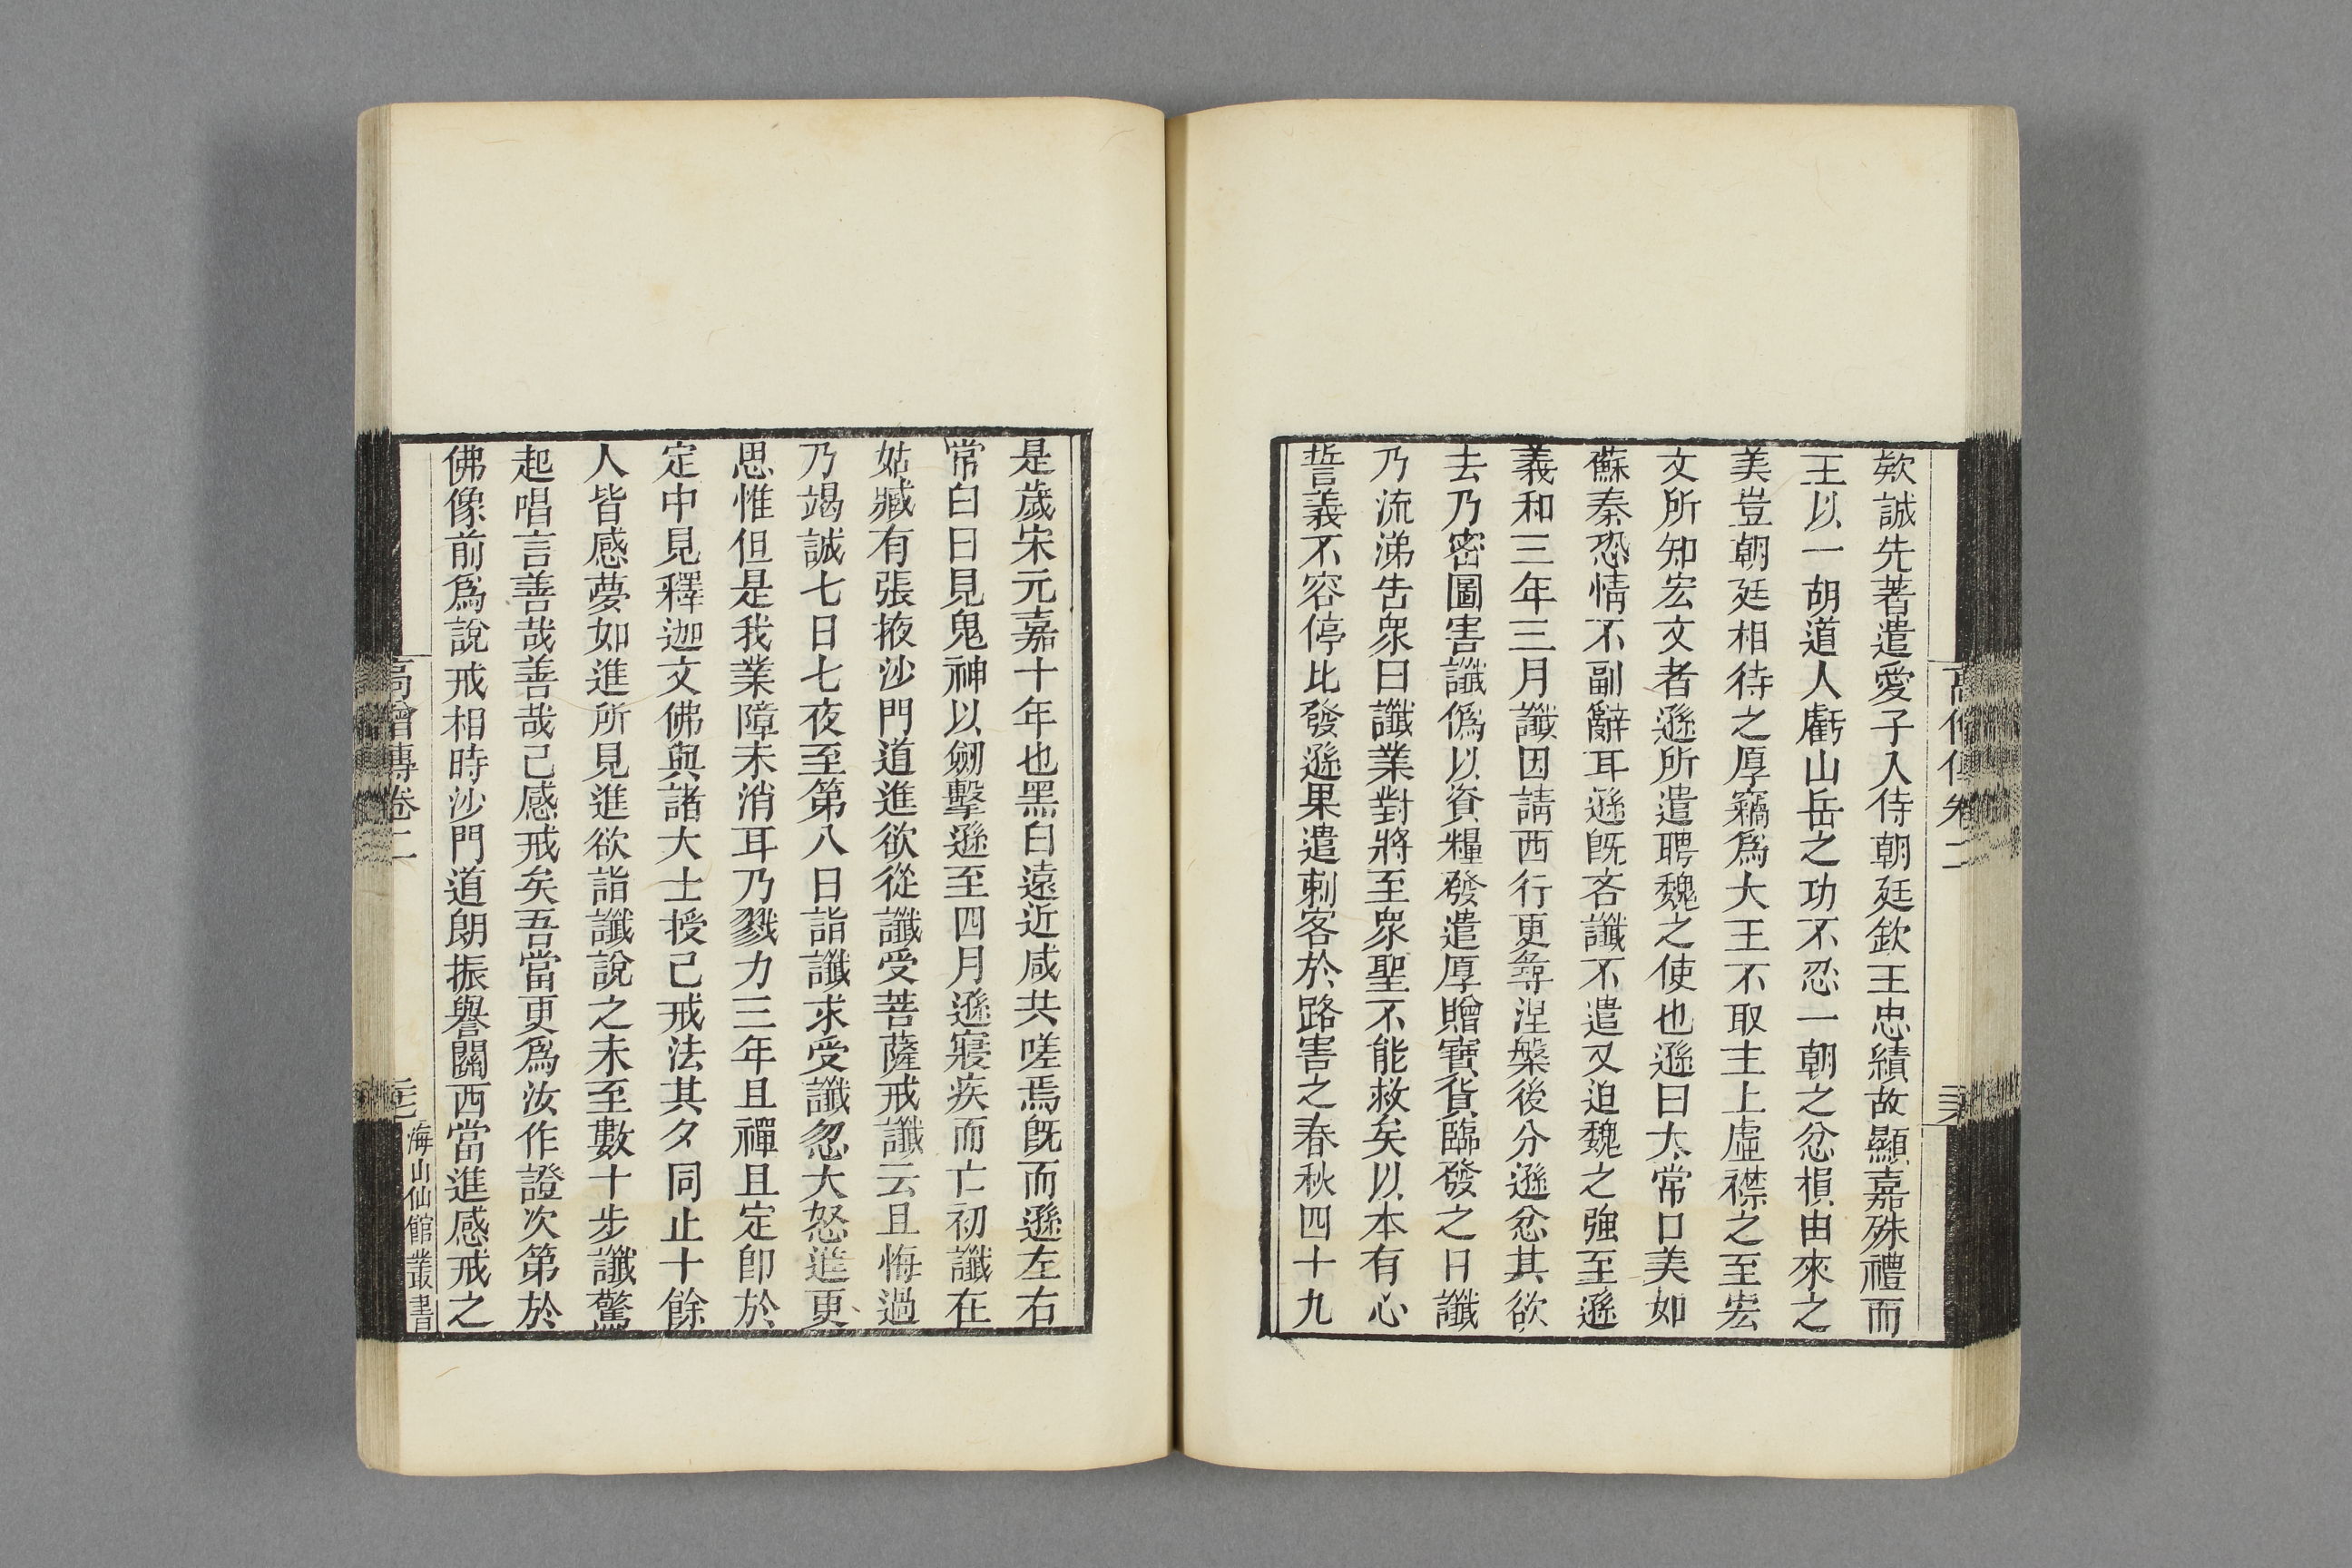 高僧傳卷二
欵誠先著遣愛子入侍朝廷欽王忠績故顯嘉殊禮而
王以一胡道人虧山岳之功不忍一朝之忿損由來之
美豈朝廷相待之厚竊爲大王不取主上虛襟之至宏
文所知宏文者遜所遣聘魏之使也遜曰太常口美如
蘇秦恐情不副辭耳遜旣吝讖不遣又迫魏之強至遜
義和三年三月讖因請西行更尋涅槃後分遜忿其欲
去乃密圖害讖僞以資糧發遣厚贈寶貨臨發之日讖
乃流涕告衆曰讖業對將至衆聖不能救矣以本有心
誓義不容停比發遜果遣刺客於路害之春秋四十九
是歲宋元嘉十年也黑白遠近咸共嗟焉旣而遜左右
常白日見鬼神以劒擊遜至四月遜寢疾而亡初讖在
姑臧有張掖沙門道進欲從讖受菩薩戒讖云且悔過
乃竭誠七日七夜至第八日詣讖求受讖忽大怒進更
思惟但是我業障未消耳乃戮力三年且禪且定卽於
定中見釋迦文佛與諸大士授己戒法其夕同止十餘
人皆感夢如進所見進欲詣讖說之未至數十步讖驚
起唱言善哉善哉己感戒矣吾當更爲汝作證次第於
佛像前爲說戒相時沙門道朗振譽關西當進感戒之
高僧傳卷二
海山仙館叢書